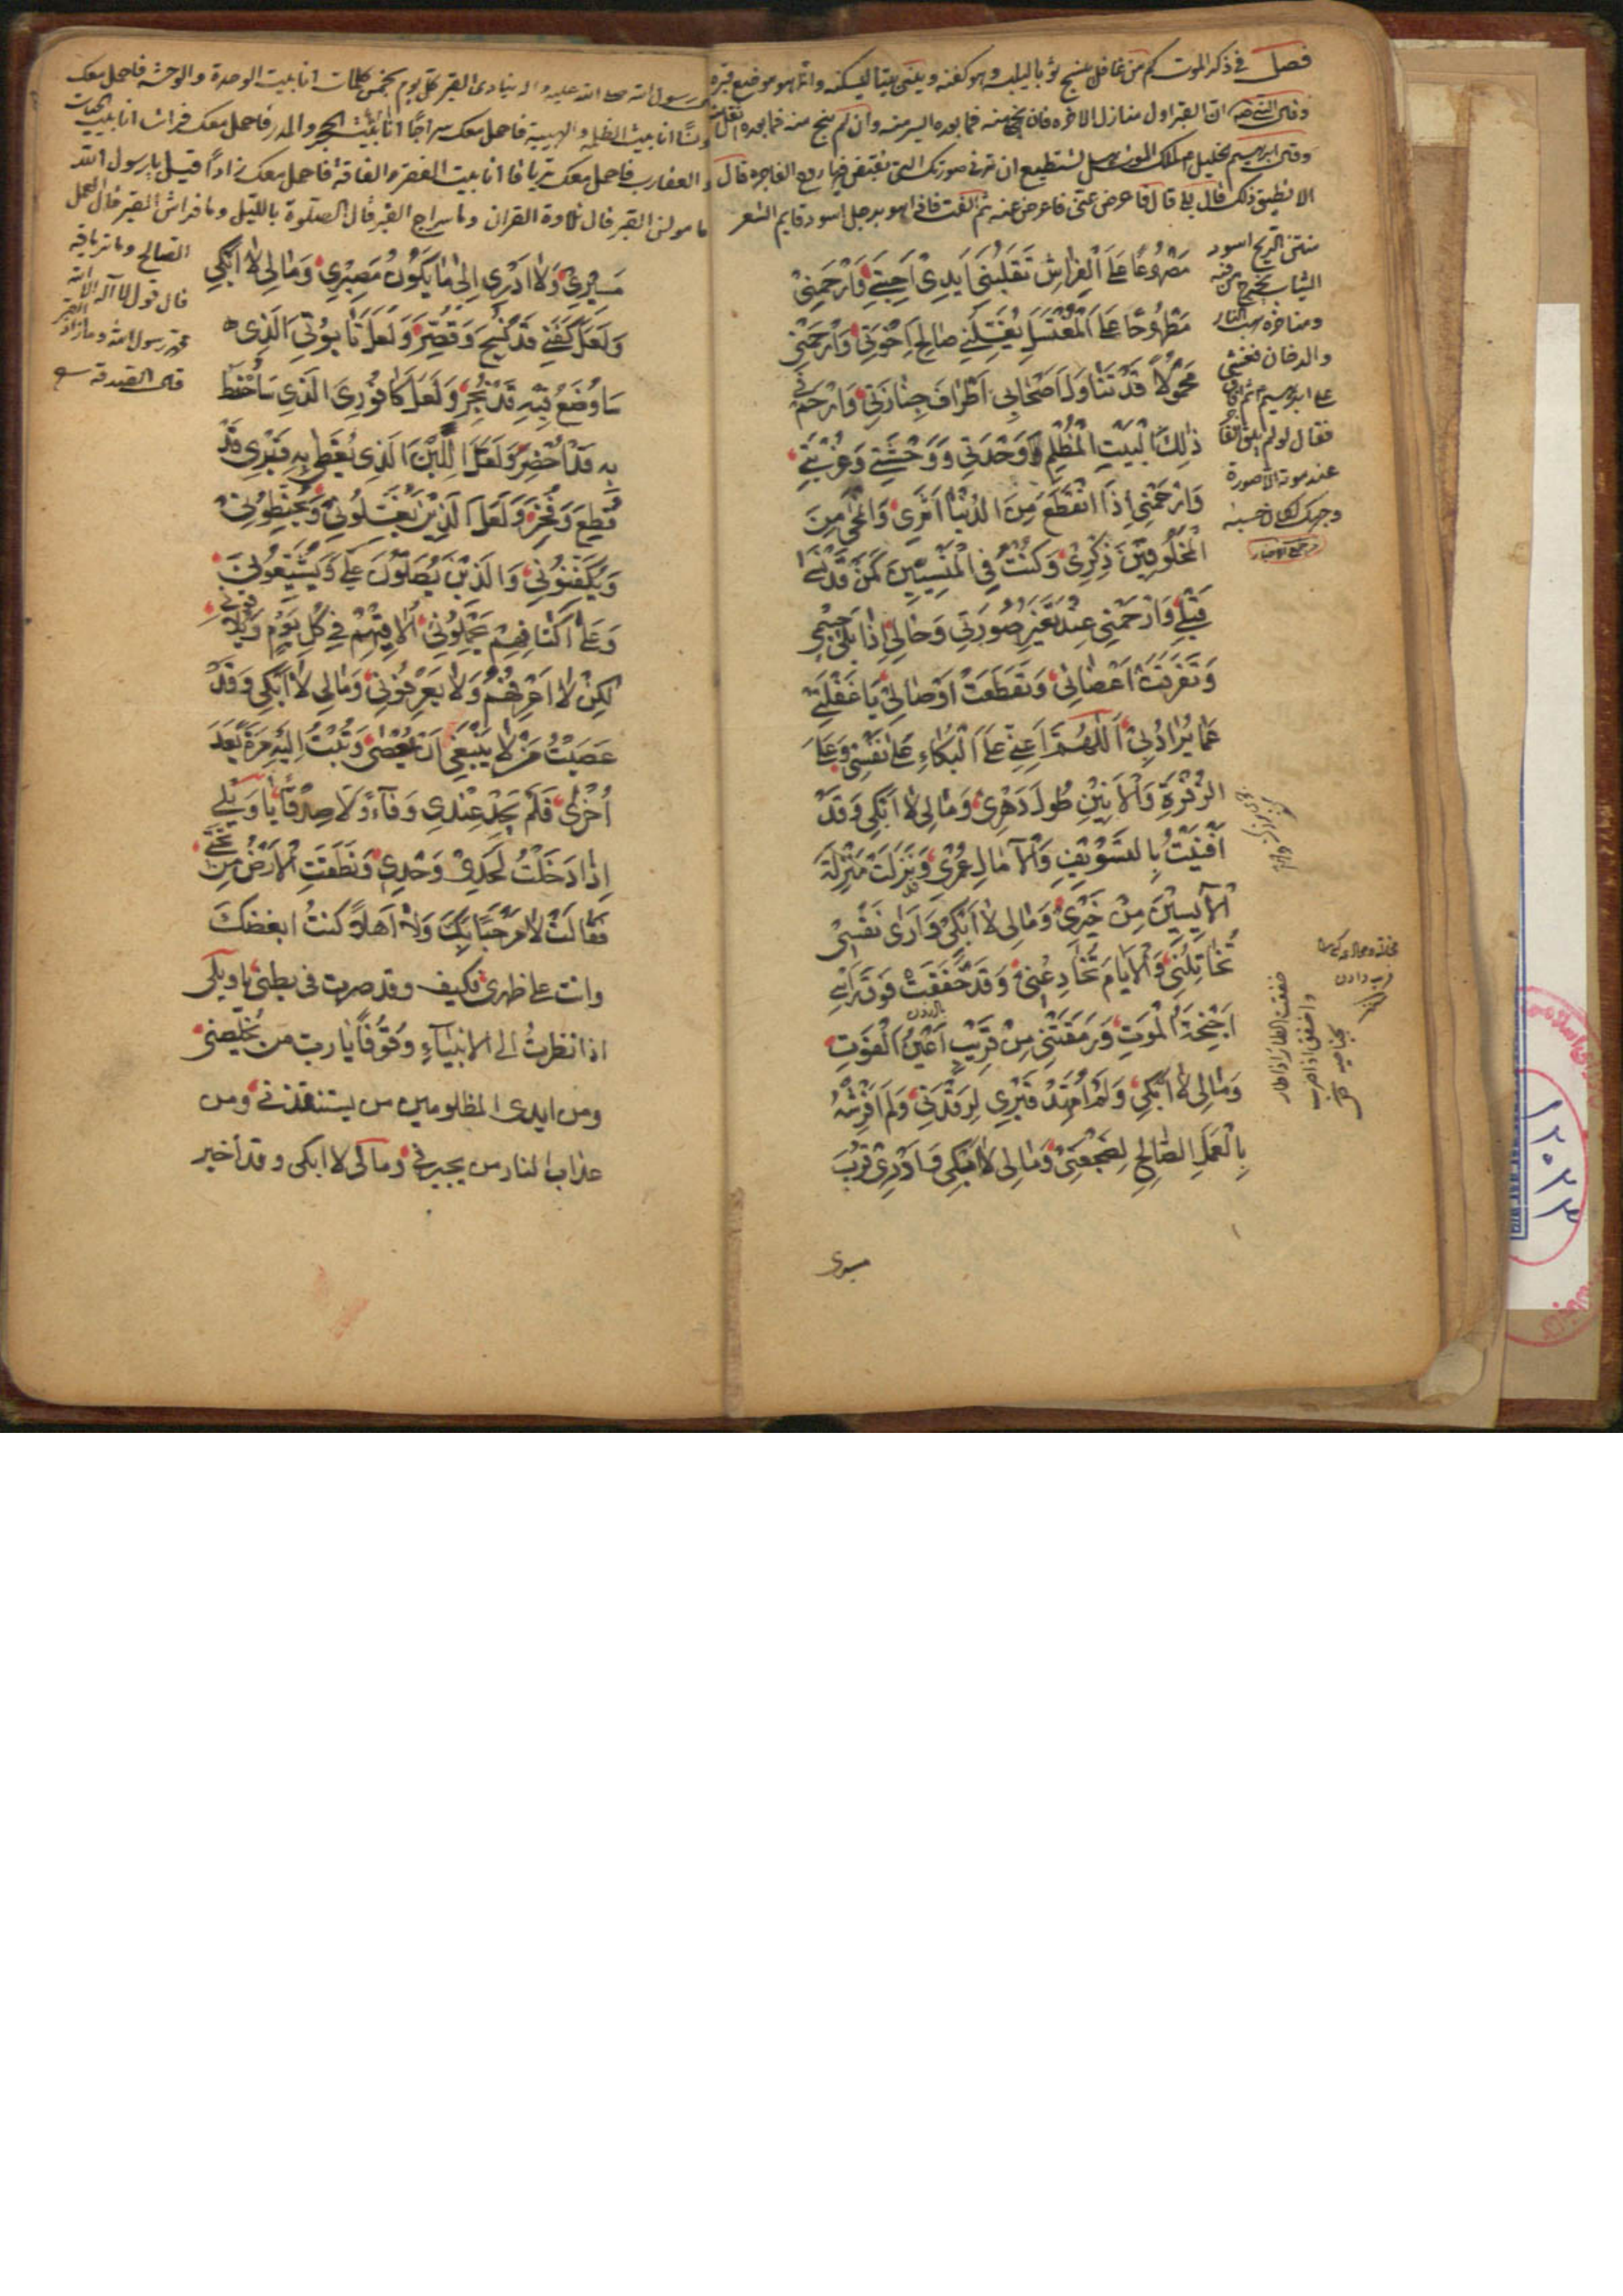 فصل في ذكر الموت كم من غافل ينسج ثوبا ليلبسه وهو كفنه ويبني بيتا ليسكنه وانما هو موضع قبره
وقال النبي ص ان القبر اول منازل الاخرة فان نجى منه فما بعده ايسر منه وان لم ينج منه فما بعده
وقال ابرهيم الخليل لملك الموت هل تستطيع ان ترني صورتك التي تقبض فيها روح الفاجر قال
لا تطيق ذلك قال بلى قال فاعرض عني فاعرض عنه ثم التفت فاذا هو برجل اسود قايم الشعر
منتن الريح اسود
الثياب يخرج من فيه
ومناخره لهب النار
والدخان فغشي
على ابرهيم ثم افاق
فقال لو لم يلق الفاجر
عند موته الا صورة
وجهك لكان حسبه
جامع الاخبار
مَصْرُوعًا عَلَى الْفِرَاشِ تُقَلِّبُنِي اَيْدِي اَحِبَّتِي وَارْحَمْنِي
مَطْرُوحًا عَلَى الْمُغْتَسَلِ يُغَسِّلُنِي صَالِحُ اِخْوَتِي وَارْحَمْنِي
مَحْمُولًا قَدْ تَنَاوَلَ اَصْحَابِي اَطْرَافَ جِنَازَتِي وَارْحَمْ فِي
ذٰلِكَ الْبَيْتِ الْمُظْلِمِ وَحْدَتِي وَوَحْشَتِي وَغُرْبَتِي
وَارْحَمْنِي اِذَا انْقَطَعَ مِنَ الدُّنْيَا اَثَرِي وَامَّحٰى مِنَ
الْمَخْلُوقِينَ ذِكْرِي وَكُنْتُ فِي الْمَنْسِيِّينَ كَمَنْ قَدْ نُسِيَ
قَبْلِي وَارْحَمْنِي عِنْدَ تَغَيُّرِ صُورَتِي وَحَالِي اِذَا بَلِيَ جِسْمِي
وَتَفَرَّقَتْ اَعْضَائِي وَتَقَطَّعَتْ اَوْصَالِي يَا غَفْلَتِي
عَمَّا يُرَادُ بِي اَللّٰهُمَّ اَعِنِّي عَلَى الْبُكَاءِ عَلٰى نَفْسِي وَعَلَى
الزَّفْرَةِ وَالْاَنِينِ طُولَ دَهْرِي وَمَالِي لَا اَبْكِي وَقَدْ
اَفْنَيْتُ بِالتَّسْوِيفِ وَالْآمَالِ عُمْرِي وَنَزَلْتُ مَنْزِلَةَ
الْآيِسِينَ مِنْ خَيْرِي وَمَالِي لَا اَبْكِي وَاَرٰى نَفْسِي
تُخَاتِلُنِي وَالْاَيَّامَ تُخَادِعُنِي وَقَدْ خَفَقَتْ فَوْقَ رَاْسِي
اَجْنِحَةُ الْمَوْتِ وَرَمَقَتْنِي مِنْ قَرِيبٍ اَعْيُنُ الْفَوْتِ
وَمَالِي لَا اَبْكِي وَلَمْ اُمَهِّدْ قَبْرِي لِرَقْدَتِي وَلَمْ اَفْرِشْهُ
بِالْعَمَلِ الصَّالِحِ لِضَجْعَتِي وَمَالِي لَا اَبْكِي وَ اَدْرِي قُرْبَ
خفقت الطائر اذا طار
واخفق اذا ضرب
بجناحيه
مسيري
رسول الله صلى الله عليه واله ينادى القبر كل يوم بخمس كلمات انا بيت الوحدة والوحشة فاحمل معك
انا بيت الظلمة فاحمل معك سراجًا انا بيت الحجر والمدر فاحمل معك فراشا انا بيت الحيات
والعقارب فاحمل معك ترياقا انا بيت الفقر والفاقة فاحمل معك زادًا قيل يا رسول الله
ما مونس القبر قال تلاوة القران وما سراج القبر قال الصلوة بالليل وما فراش القبر قال العمل
الصالح وما ترياقه
قال قول لا اله الا الله
محمد رسول الله وما زاد القبر
قال الصدقة
مَسِيرِي وَلَا اَدْرِي اِلٰى مَا يَكُونُ مَصِيرِي وَمَالِي لَا اَبْكِي
وَلَعَلَّ كَفَنِي قَدْ نُسِجَ وَقُصِّرَ وَلَعَلَّ تَابُوتِي الَّذِي
سَاُوضَعُ فِيهِ قَدْ نُجِرَ وَلَعَلَّ كَافُورِي الَّذِي سَاُحَنَّطُ
بِهِ قَدْ اُحْضِرَ وَلَعَلَّ اللَّبِنَ الَّذِي يُغَطّٰى بِهِ قَبْرِي قَدْ
قُطِعَ وَفُخِرَ وَلَعَلَّ الَّذِينَ يُغَسِّلُونِي وَيُحَنِّطُونِي
وَيُكَفِّنُونِي وَالَّذِينَ يُصَلُّونَ عَلَيَّ وَيُشَيِّعُونِي
وَعَلٰى اَكْتَافِهِمْ يَحْمِلُونِي اُلَاقِيهِمْ فِي كُلِّ يَوْمٍ
لٰكِنْ لَا اَعْرِفُهُمْ وَلَا يَعْرِفُونِي وَمَالِي لَا اَبْكِي وَقَدْ
عَصَيْتُ مَنْ لَا يَنْبَغِي اَنْ يُعْصٰى وَتُبْتُ اِلَيْهِ مَرَّةً بَعْدَ
اُخْرٰى فَلَمْ يَجِدْ عِنْدِي وَفَاءً وَلَا صِدْقًا يَا وَيْلِي
اِذَا دَخَلْتُ لَحْدِي وَحْدِي وَنَطَقَتِ الْاَرْضُ مِنْ تَحْتِي
فَقَالَتْ لَا مَرْحَبًا بِكَ وَلَا اَهْلًا كُنْتُ ابغضك
وانت على ظهري فكيف وقد صرت في بطني يا ويلي
اذا نظرتُ الى الانبياءِ وُقُوفًا يا رب من يُخَلِّصني
ومن ايدي المظلومين من يستنقذني ومن
عذاب النار من يجيرني ومالي لا ابكي وقد اخبر
١٢٠٢٣